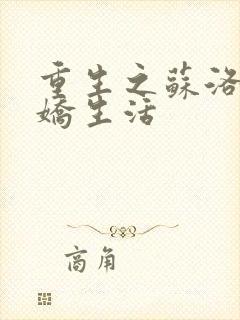 重生之蘇洛
嬌生活
商角